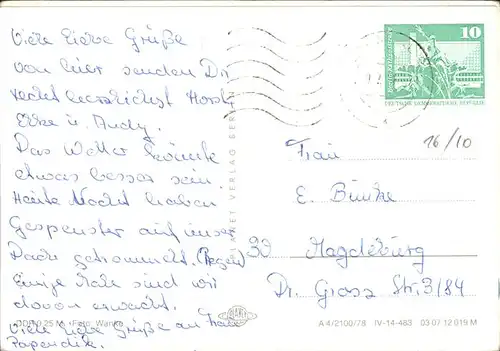 Viele liebe Grüße
von hier senden Dir
recht herzlichst Horst,
Elke u. Andy.
Das Wetter könnte
etwas besser sein.
Heute Nacht haben
Gespenster auf unser
Dach getrommelt. (Regen)
Einige Male sind wir
davon erwacht.
Viele liebe Grüße an Frau
Papendik.
10
DEUTSCHE DEMOKRATISCHE REPUBLIK
16/10
Frau
E.
30 Magdeburg
Dr. Grosz Str. 3/84
PLANET VERLAG BERLIN
0,25 M Foto: Wanke
PLANET
A 4/2100/78 IV-14-483 03 07 12 019 M